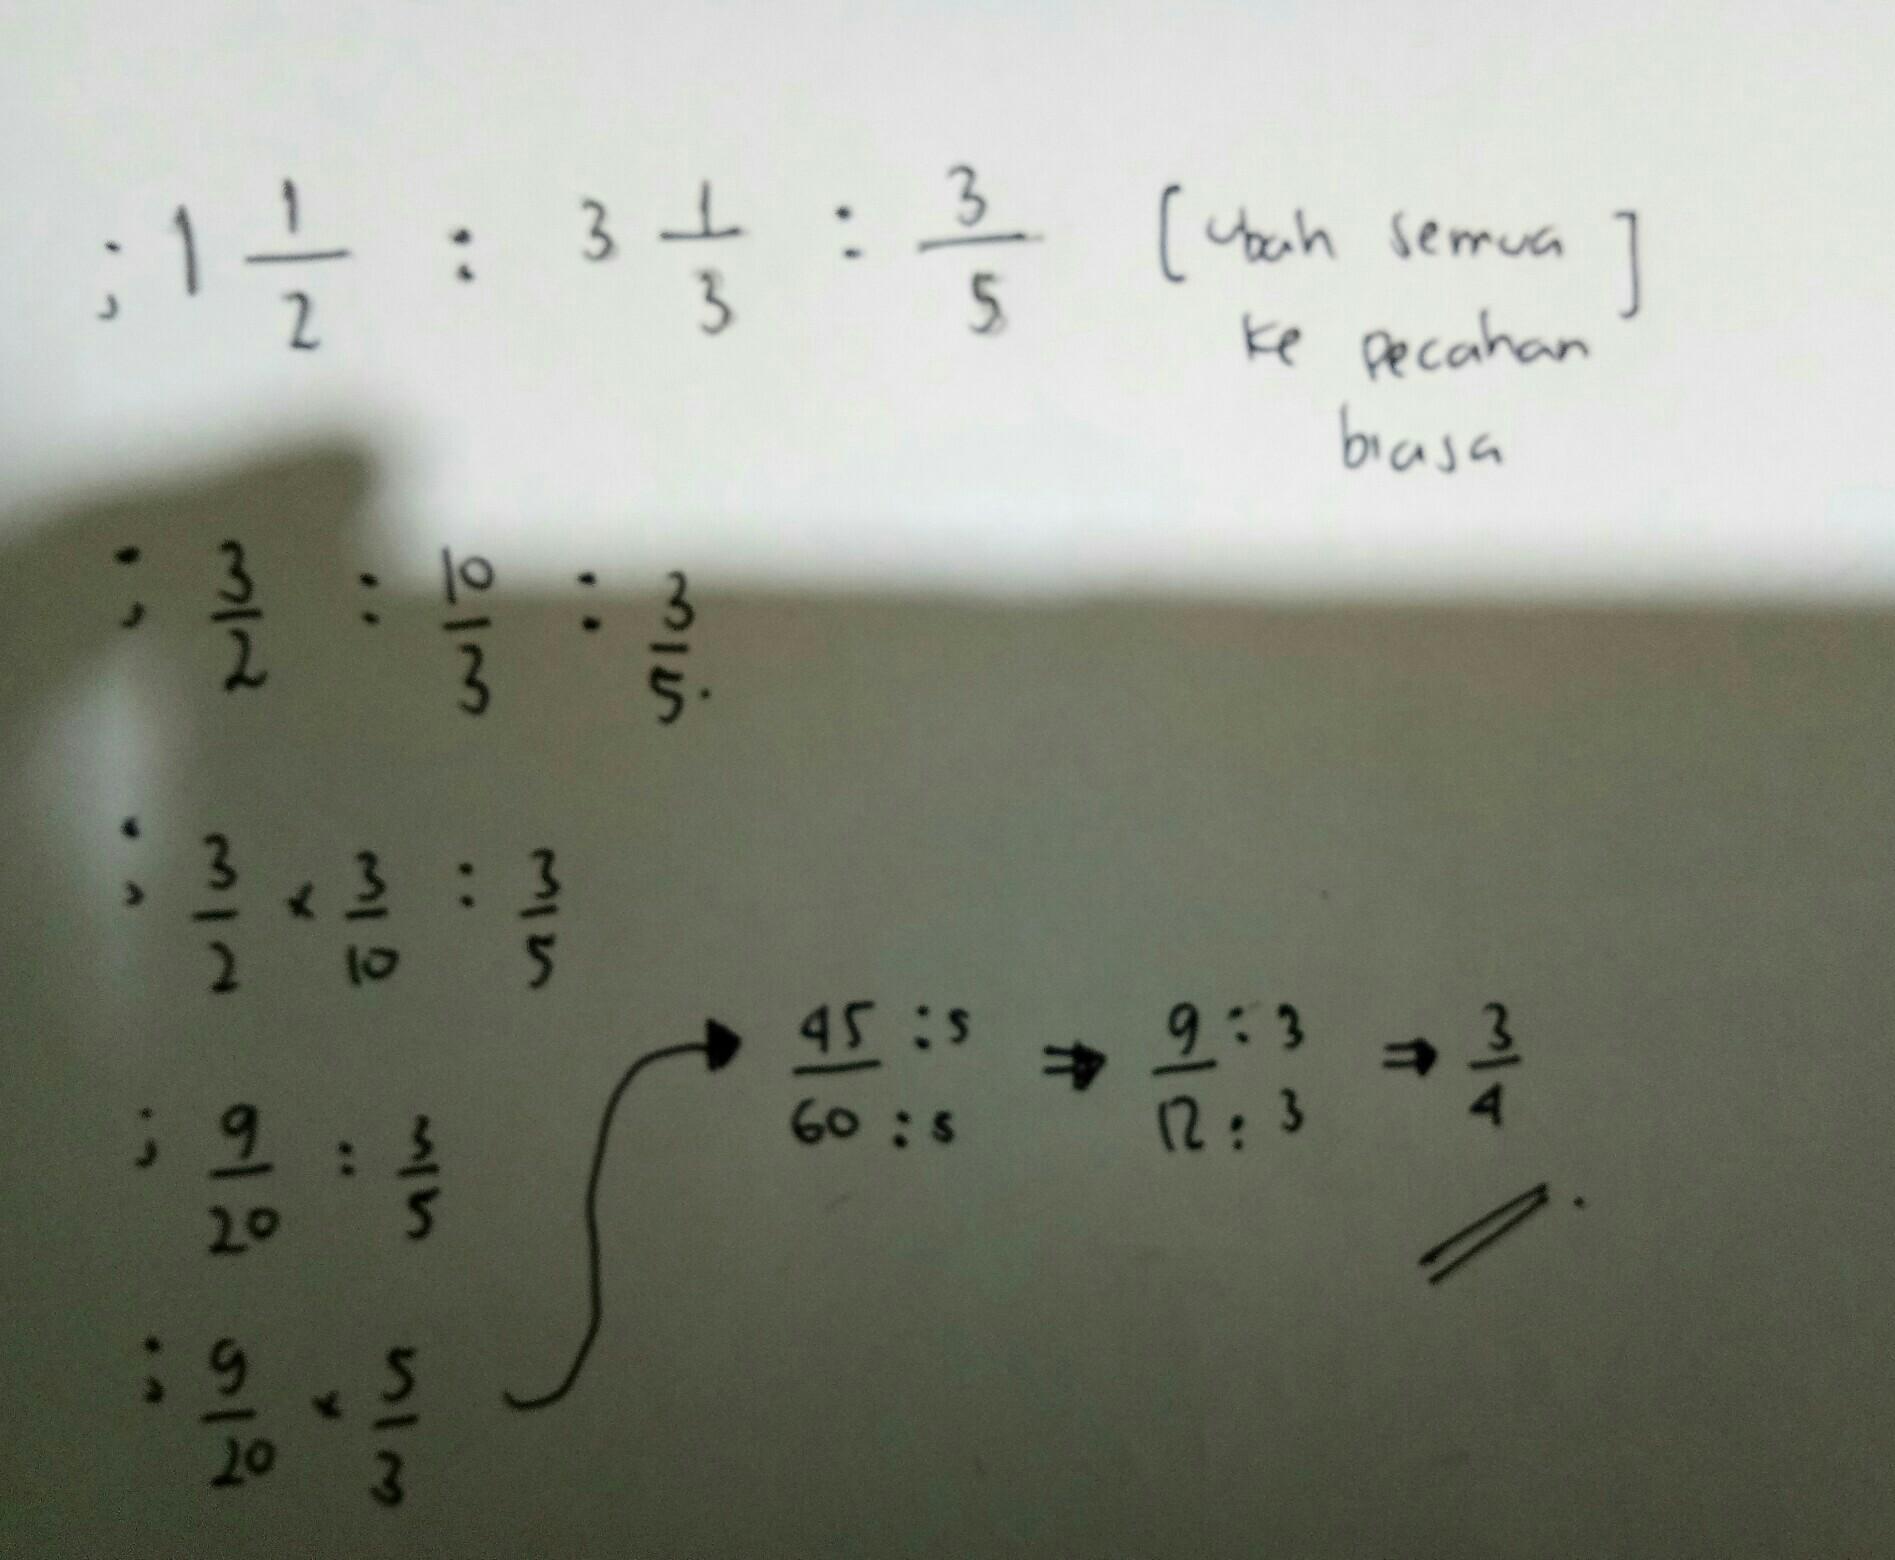 ; 1 1/2 : 3 1/3 : 3/5 [ubah semua]
ke pecahan
biasa
; 3/2 : 10/3 : 3/5.
; 3/2 × 3/10 : 3/5
; 9/20 : 3/5
; 9/20 × 5/3
45 : 5 / 60 : 5 ⇒ 9 : 3 / 12 : 3 ⇒ 3/4